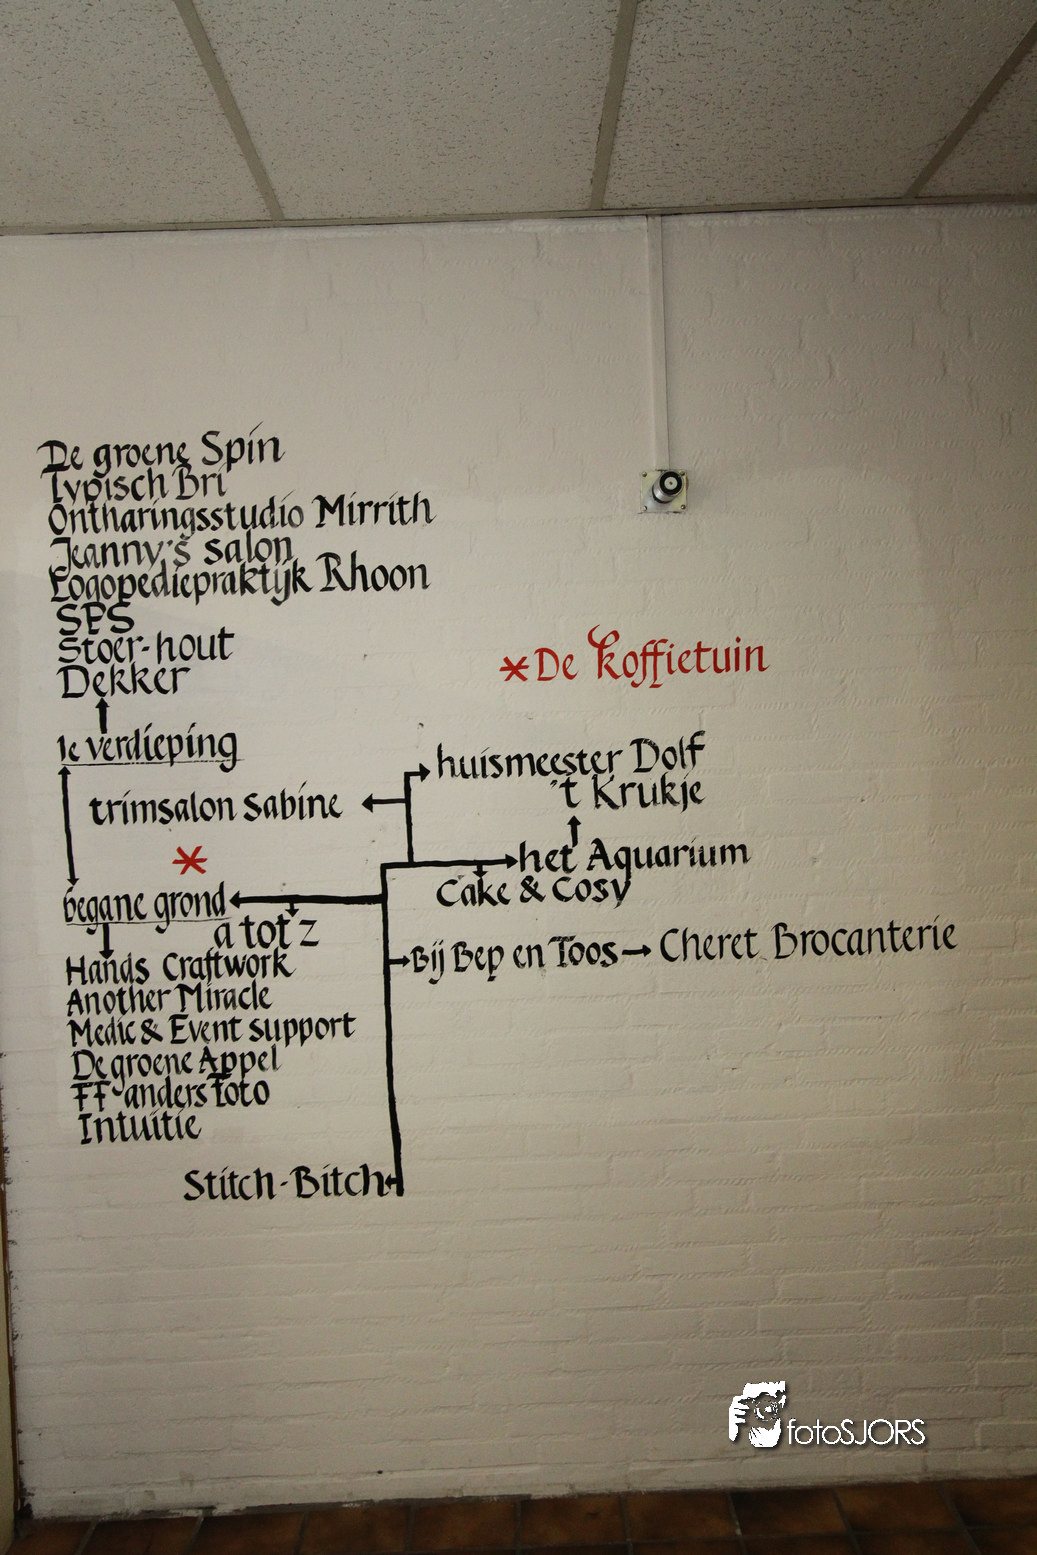 De groene Spin
Typisch Bri
Ontharingsstudio Mirrith
Jeanny's salon
Logopediepraktijk Rhoon
SPS
Stoer-hout
Dekker
*De Koffietuin
1e verdieping
huismeester Dolf
't Krukje
trimsalon Sabine
*
het Aquarium
Cake & Cosy
begane grond
a tot z
Bij Bep en Toos → Cheret Brocanterie
Hands Craftwork
Another Miracle
Medic & Event support
De groene Appel
FF-anders foto
Intuitie
Stitch-Bitch
fotoSJORS